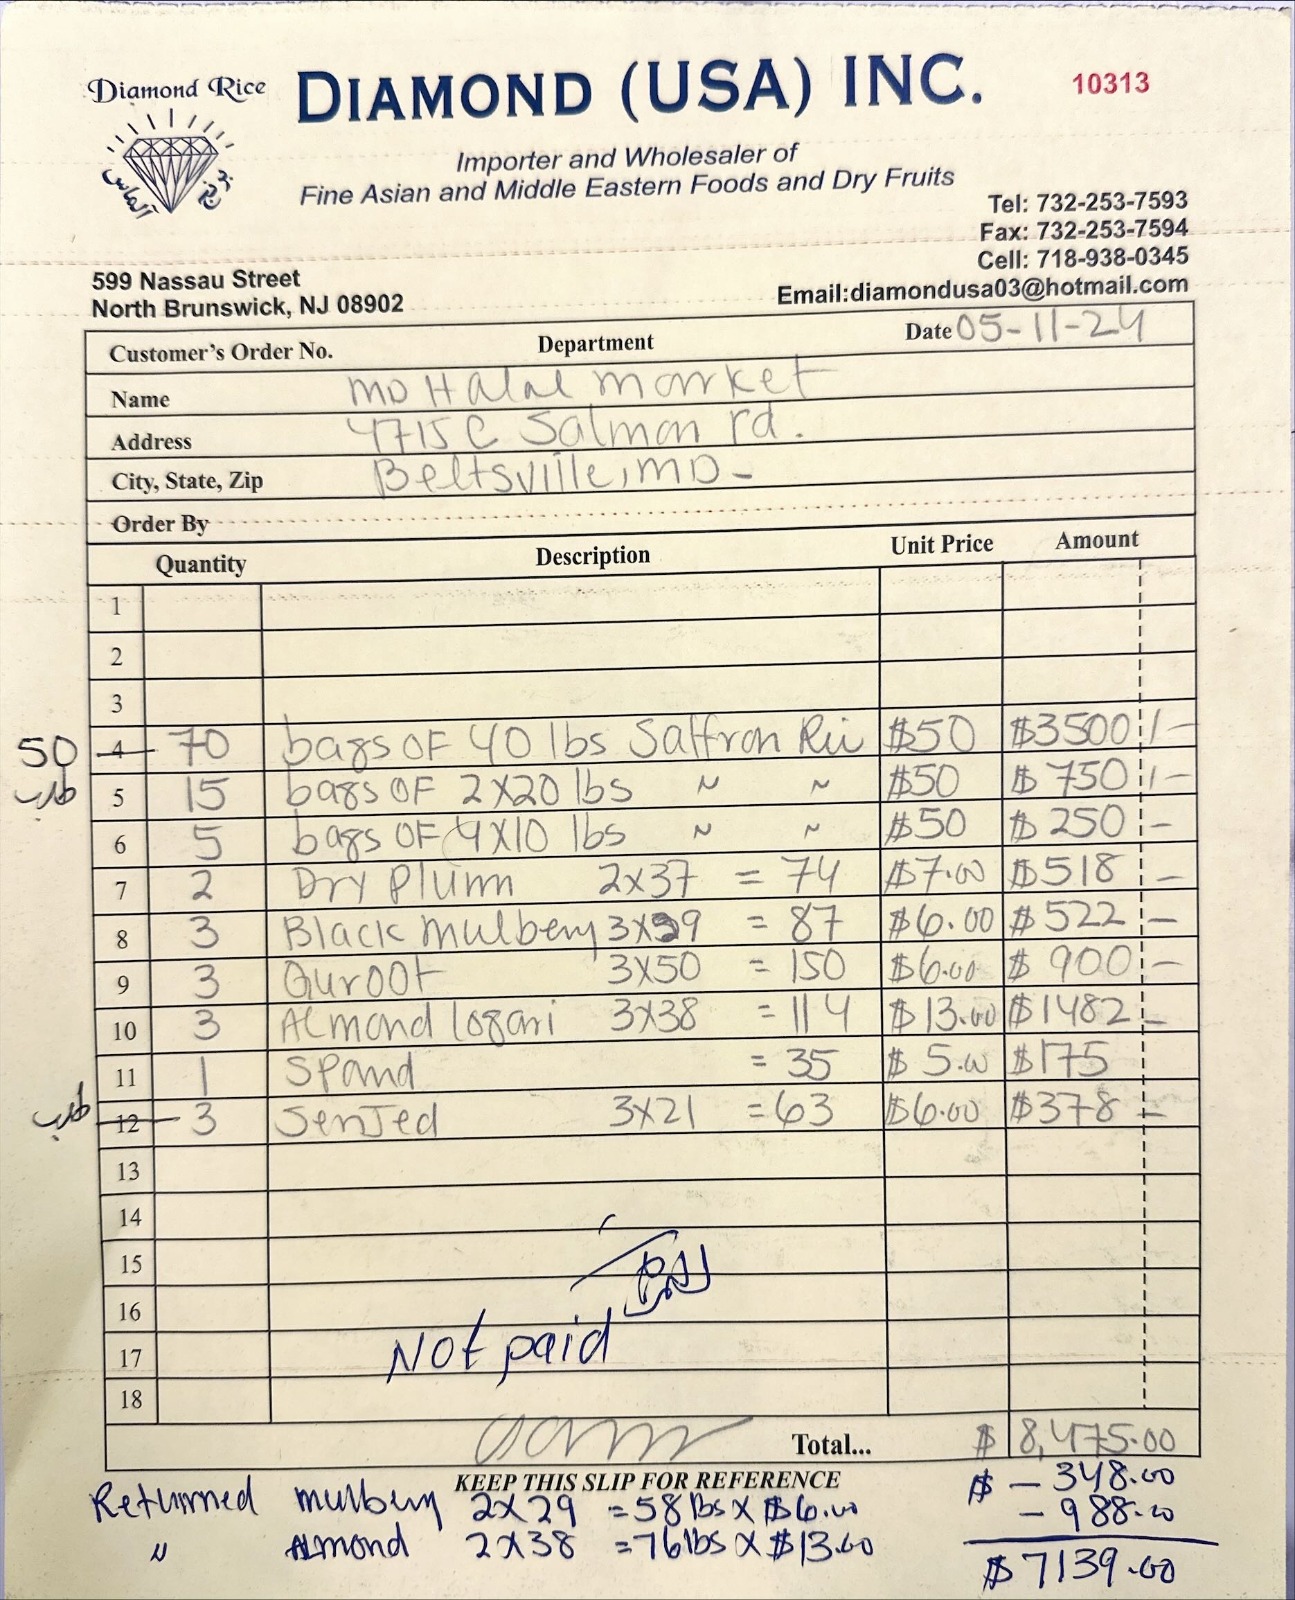 Diamond Rice
DIAMOND (USA) INC.
10313
Importer and Wholesaler of
Fine Asian and Middle Eastern Foods and Dry Fruits
الماس
Tel: 732-253-7593
Fax: 732-253-7594
Cell: 718-938-0345
599 Nassau Street
North Brunswick, NJ 08902
Email:diamondusa03@hotmail.com
Customer's Order No. Department Date 05-11-24
Name MD Halal market
Address 4715 C Salmon rd.
City, State, Zip Beltsville, MD -
Order By
Quantity Description Unit Price Amount
1
2
3
50 4 70 bags OF 40 lbs Saffron Rii $50 $3500 /-
5 15 bags OF 2X20 lbs " " $50 $ 750 /-
6 5 bags OF 4X10 lbs " " $50 $ 250 -
7 2 Dry Plumn 2x37 = 74 $7.00 $518 -
8 3 Black mulbery 3X29 = 87 $6.00 $522 -
9 3 Quroot 3X50 = 150 $6.00 $ 900 -
10 3 Almond logari 3X38 = 114 $13.00 $1482 -
11 1 Spand = 35 $ 5.00 $175
12 3 SenJed 3X21 = 63 $6.00 $378 -
13
14
15
16
17 Not paid
18
Total... $ 8,475.00
KEEP THIS SLIP FOR REFERENCE
$ - 348.00
Returned mulbery 2X29 = 58 lbs X $6.00
- 988.00
" Almond 2X38 = 76 lbs X $13.00
$ 7139.00